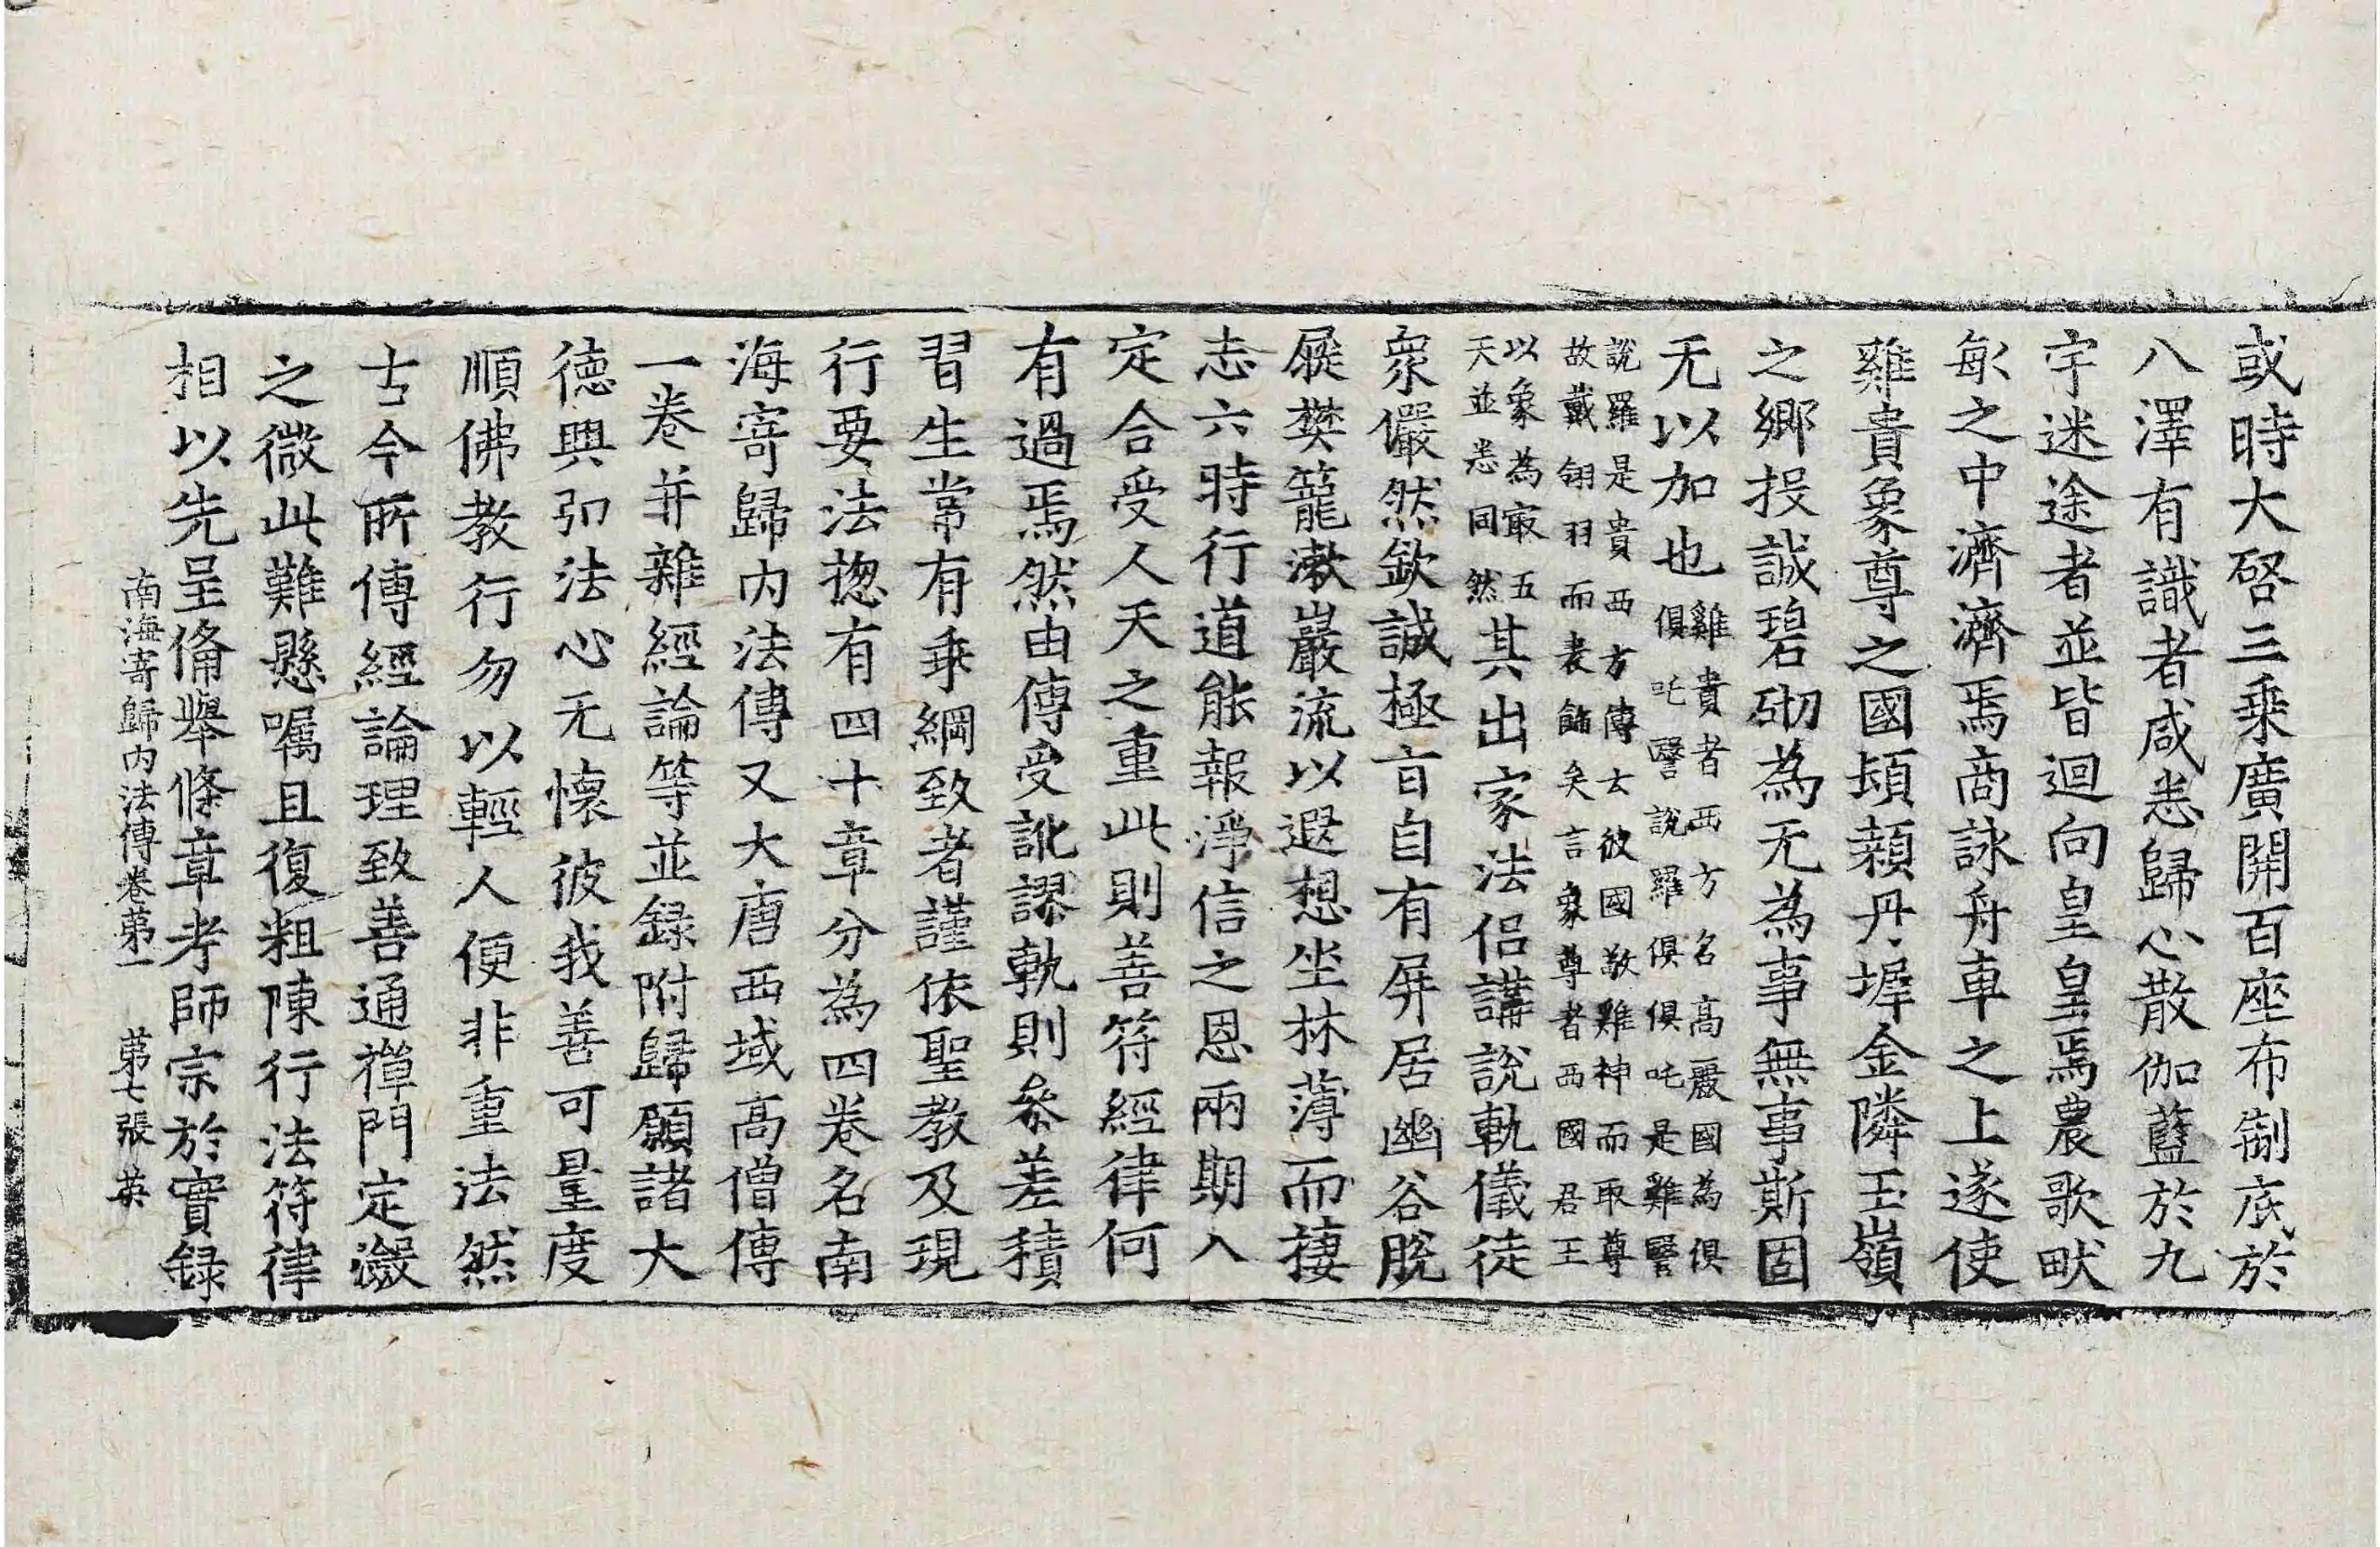 或時大啓三乗廣開百座布制底於
八澤有識者咸悉歸心散伽藍於九
宇迷途者並皆迴向皇皇焉農歌畎
畝之中濟濟焉商詠舟車之上遂使
雞貴象尊之國頓顙丹墀金隣玉嶺
之鄉投誠碧砌為无為事無事斯固
无以加也
雞貴者西方名高麗國為俱
俱吒說羅俱俱吒是雞
說羅是貴西方傳云彼國敬雞神而取尊
故戴翎羽而表飾矣言象尊者西國君王
以象為㝡五
天並悉同然
其出家法侣講說軌儀徒
衆儼然欽誠極旨自有屏居幽谷脫
屣樊籠漱巖流以遐想坐林薄而棲
志六時行道能報淨信之恩兩期入
定合受人天之重此則善符經律何
有過焉然由傳受訛謬軌則叅差積
習生常有乖綱致者謹依聖教及現
行要法揔有四十章分為四卷名南
海寄歸内法傳又大唐西域高僧傳
一卷并雜經論等並録附歸願諸大
德興弘法心无懷彼我善可量度
順佛教行勿以輕人便非重法然
古今所傳經論理致善通禪門定瀲
之微此難懸囑且復粗陳行法符律
相以先呈俻舉條章考師宗於實録
南海寄歸内法傳卷苐一 苐七張 英